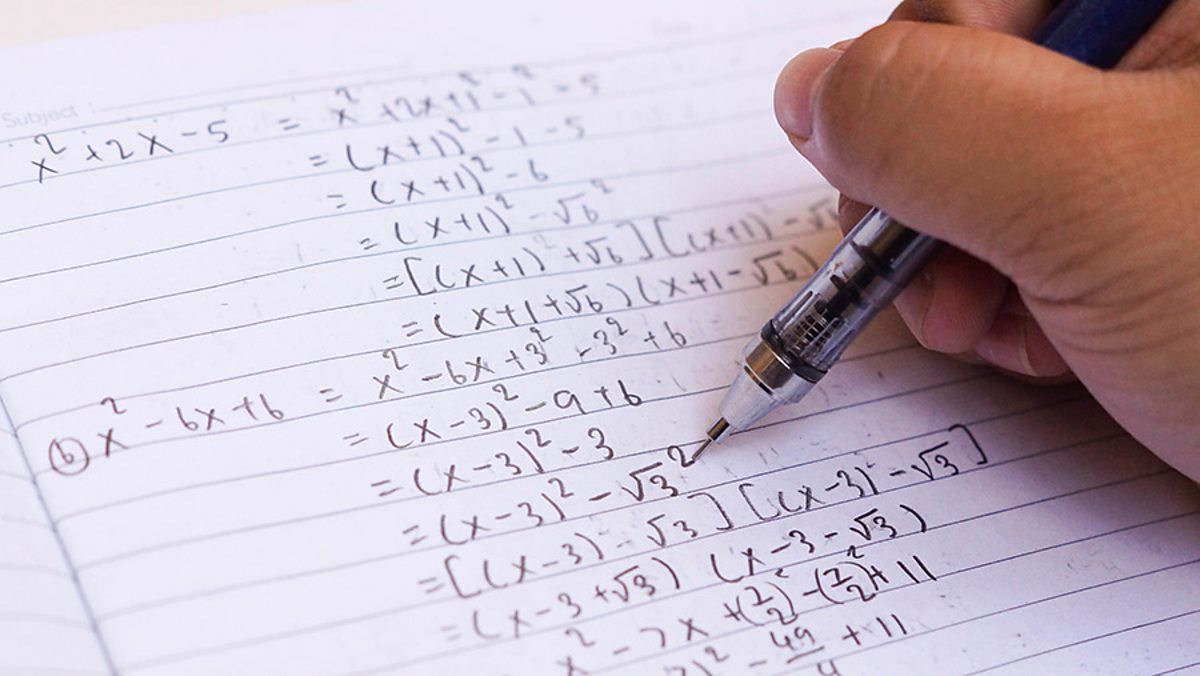 Subject :
x² + 2x - 5 = x² + 2x + 1² - 1² - 5
= (x+1)² - 1 - 5
= (x+1)² - 6
= (x+1)² - √6²
= [(x+1)² + √6] [(x+1)² - √6
= (x+1+√6) (x+1-√6)
(b) x² - 6x + 6 = x² - 6x + 3² - 3² + 6
= (x-3)² - 9 + 6
= (x-3)² - 3
= (x-3)² - √3²
= [(x-3) - √3] [(x-3) - √3]
= (x-3+√3) (x-3-√3)
x² - 7x + (7/2)² - (7/2)² + 11
)² - 49/4 + 11